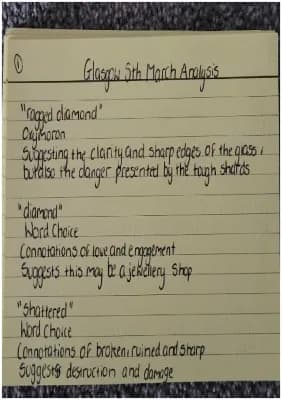 ①
Glasgow 5th March Analysis
"ragged diamond"
Oxymoron
Suggesting the clarity and sharp edges of the glass,
but also the danger presented by the tough shards
"diamond"
Word Choice
Connotations of love and engagement
Suggests this may be a jewellery shop
"Shattered"
Word Choice
Connotations of broken, ruined and sharp
Suggests destruction and damage